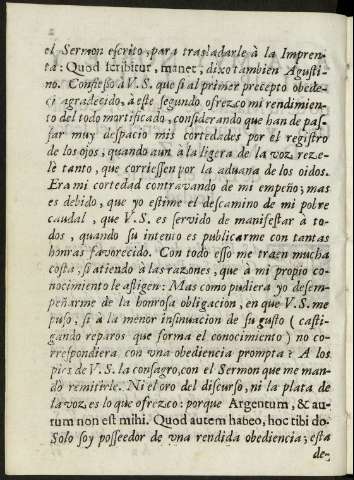 el Sermon escrito, para trasladarle à la Impren-
ta: Quod scribitur, manet, dixo tambien Agusti-
no. Confiesso à V.S. que si al primer precepto obede-
ci agradecido, à este segundo ofrezco mi rendimien-
to del todo mortificado, considerando que han de pas-
sar muy despacio mis cortedades por el registro
de los ojos, quando aun à la ligera de la voz reze-
lè tanto, que corriessen por la aduana de los oidos.
Era mi cortedad contravando de mi empeño; mas
es debido, que yo estime el descamino de mi pobre
caudal, que V.S. es servido de manifestar à to-
dos, quando su intento es publicarme con tantas
honras favorecido. Con todo esso me traen mucha
costa, si atiendo à las razones, que à mi propio co-
nocimiento le astigen: Mas como pudiera yo desem-
peñarme de la honrosa obligacion, en que V.S. me
puso, si à la menor insinuacion de su gusto (casti-
gando reparos que forma el conocimiento) no co-
rrespondiera con una obediencia prompta? A los
pies de V.S. la consagro, con el Sermon que me man-
dò remitirle. Ni el oro del discurso, ni la plata de
la voz es lo que ofrezco: porque Argentum, & au-
rum non est mihi. Quod autem habeo, hoc tibi do.
Solo soy posseedor de vna rendida obediencia; esta
de-